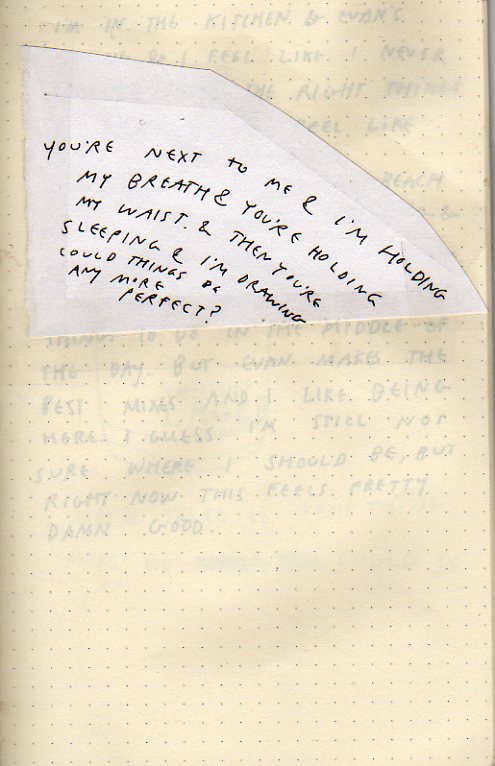 I'M IN THE KITCHEN & EVAN'S
I FEEL LIKE I NEVER
THE RIGHT THINGS
FEEL LIKE
YOU'RE NEXT to ME & I'M HOLDING
MY BREATH & YOU'RE HOLDING
MY WAIST. & THEN YOU'RE
SLEEPING & I'M DRAWING
COULD THINGS BE
ANY MORE
PERFECT?
BEACH
THINGS TO DO IN THE MIDDLE OF
THE DAY. BUT EVAN MAKES THE
BEST MIXES AND I LIKE BEING
HERE. I GUESS I'M STILL NOT
SURE WHERE I SHOULD BE, BUT
RIGHT NOW THIS FEELS PRETTY
DAMN GOOD.